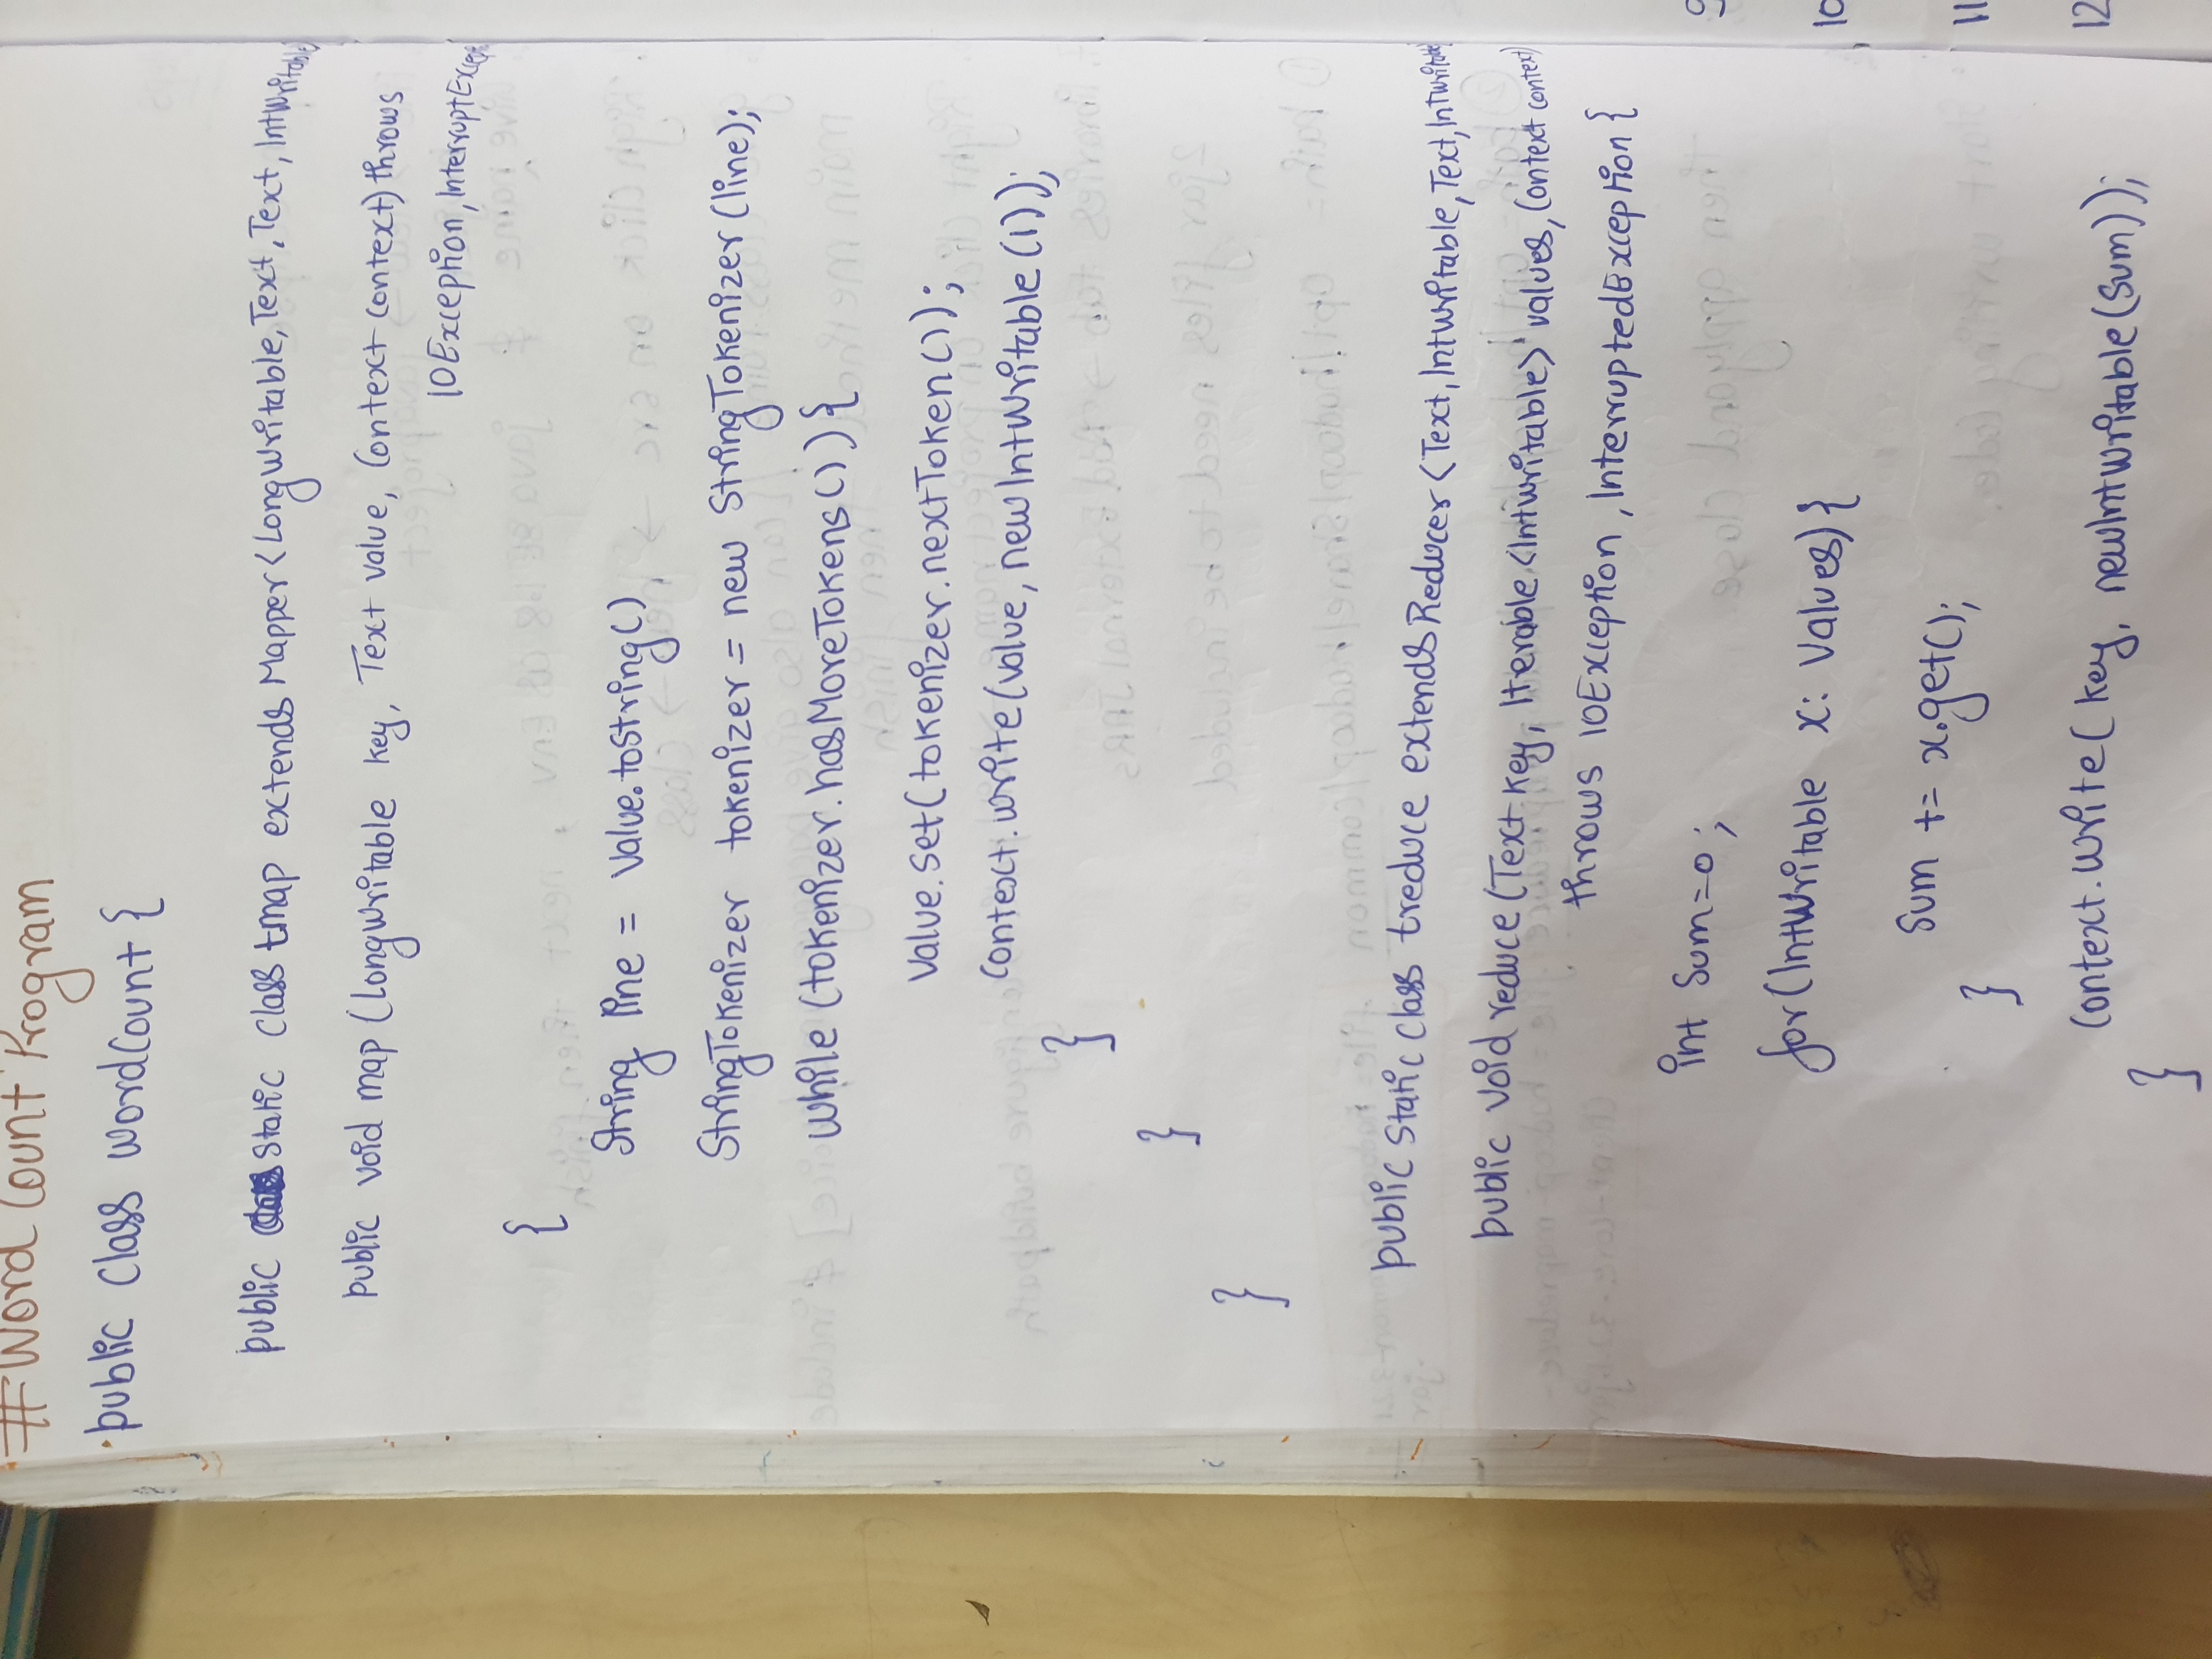 # Word Count Program
public Class WordCount {
public Static Class tmap extends Mapper<LongWritable, Text, Text, IntWritable
public void map (LongWritable key, Text value, Context context) throws
IOException, InterruptExcep
{
String line = Value.toString()
StringTokenizer tokenizer = new StringTokenizer (line);
while (tokenizer.hasMoreTokens()) {
Value.set(tokenizer.nextToken());
Context.write(value, new IntWritable (1));
}
}
}
public Static Class treduce extends Reducer <Text, IntWritable, Text, IntWritable
public void reduce (Text key, Iterable <IntWritable> values, Context context)
throws IOException, InterruptedException {
int Sum=0;
for(IntWritable x: Values) {
Sum += x.get();
}
Context.Write( key, new IntWritable (Sum));
}
9
10
11
12